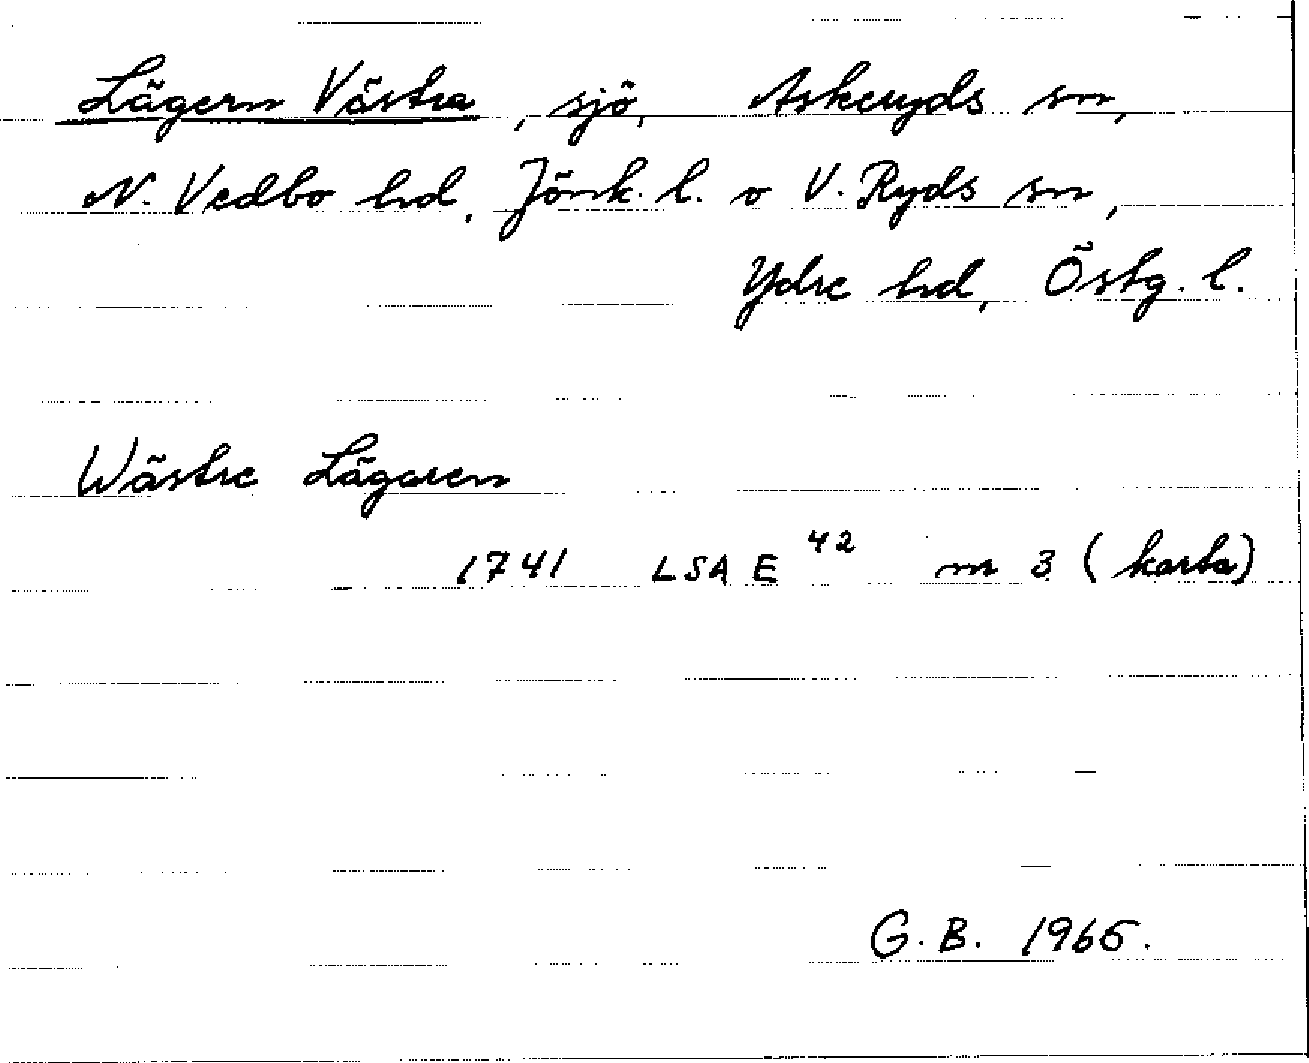 Lägern Västra, sjö, Askeryds sn,
N. Vedbo hd, Jönk. l. o V. Ryds sn,
Ydre hd, Östg. l.
Wästre Lägaren
1741 LSA E 42 nr 3 (karta)
G. B. 1965.